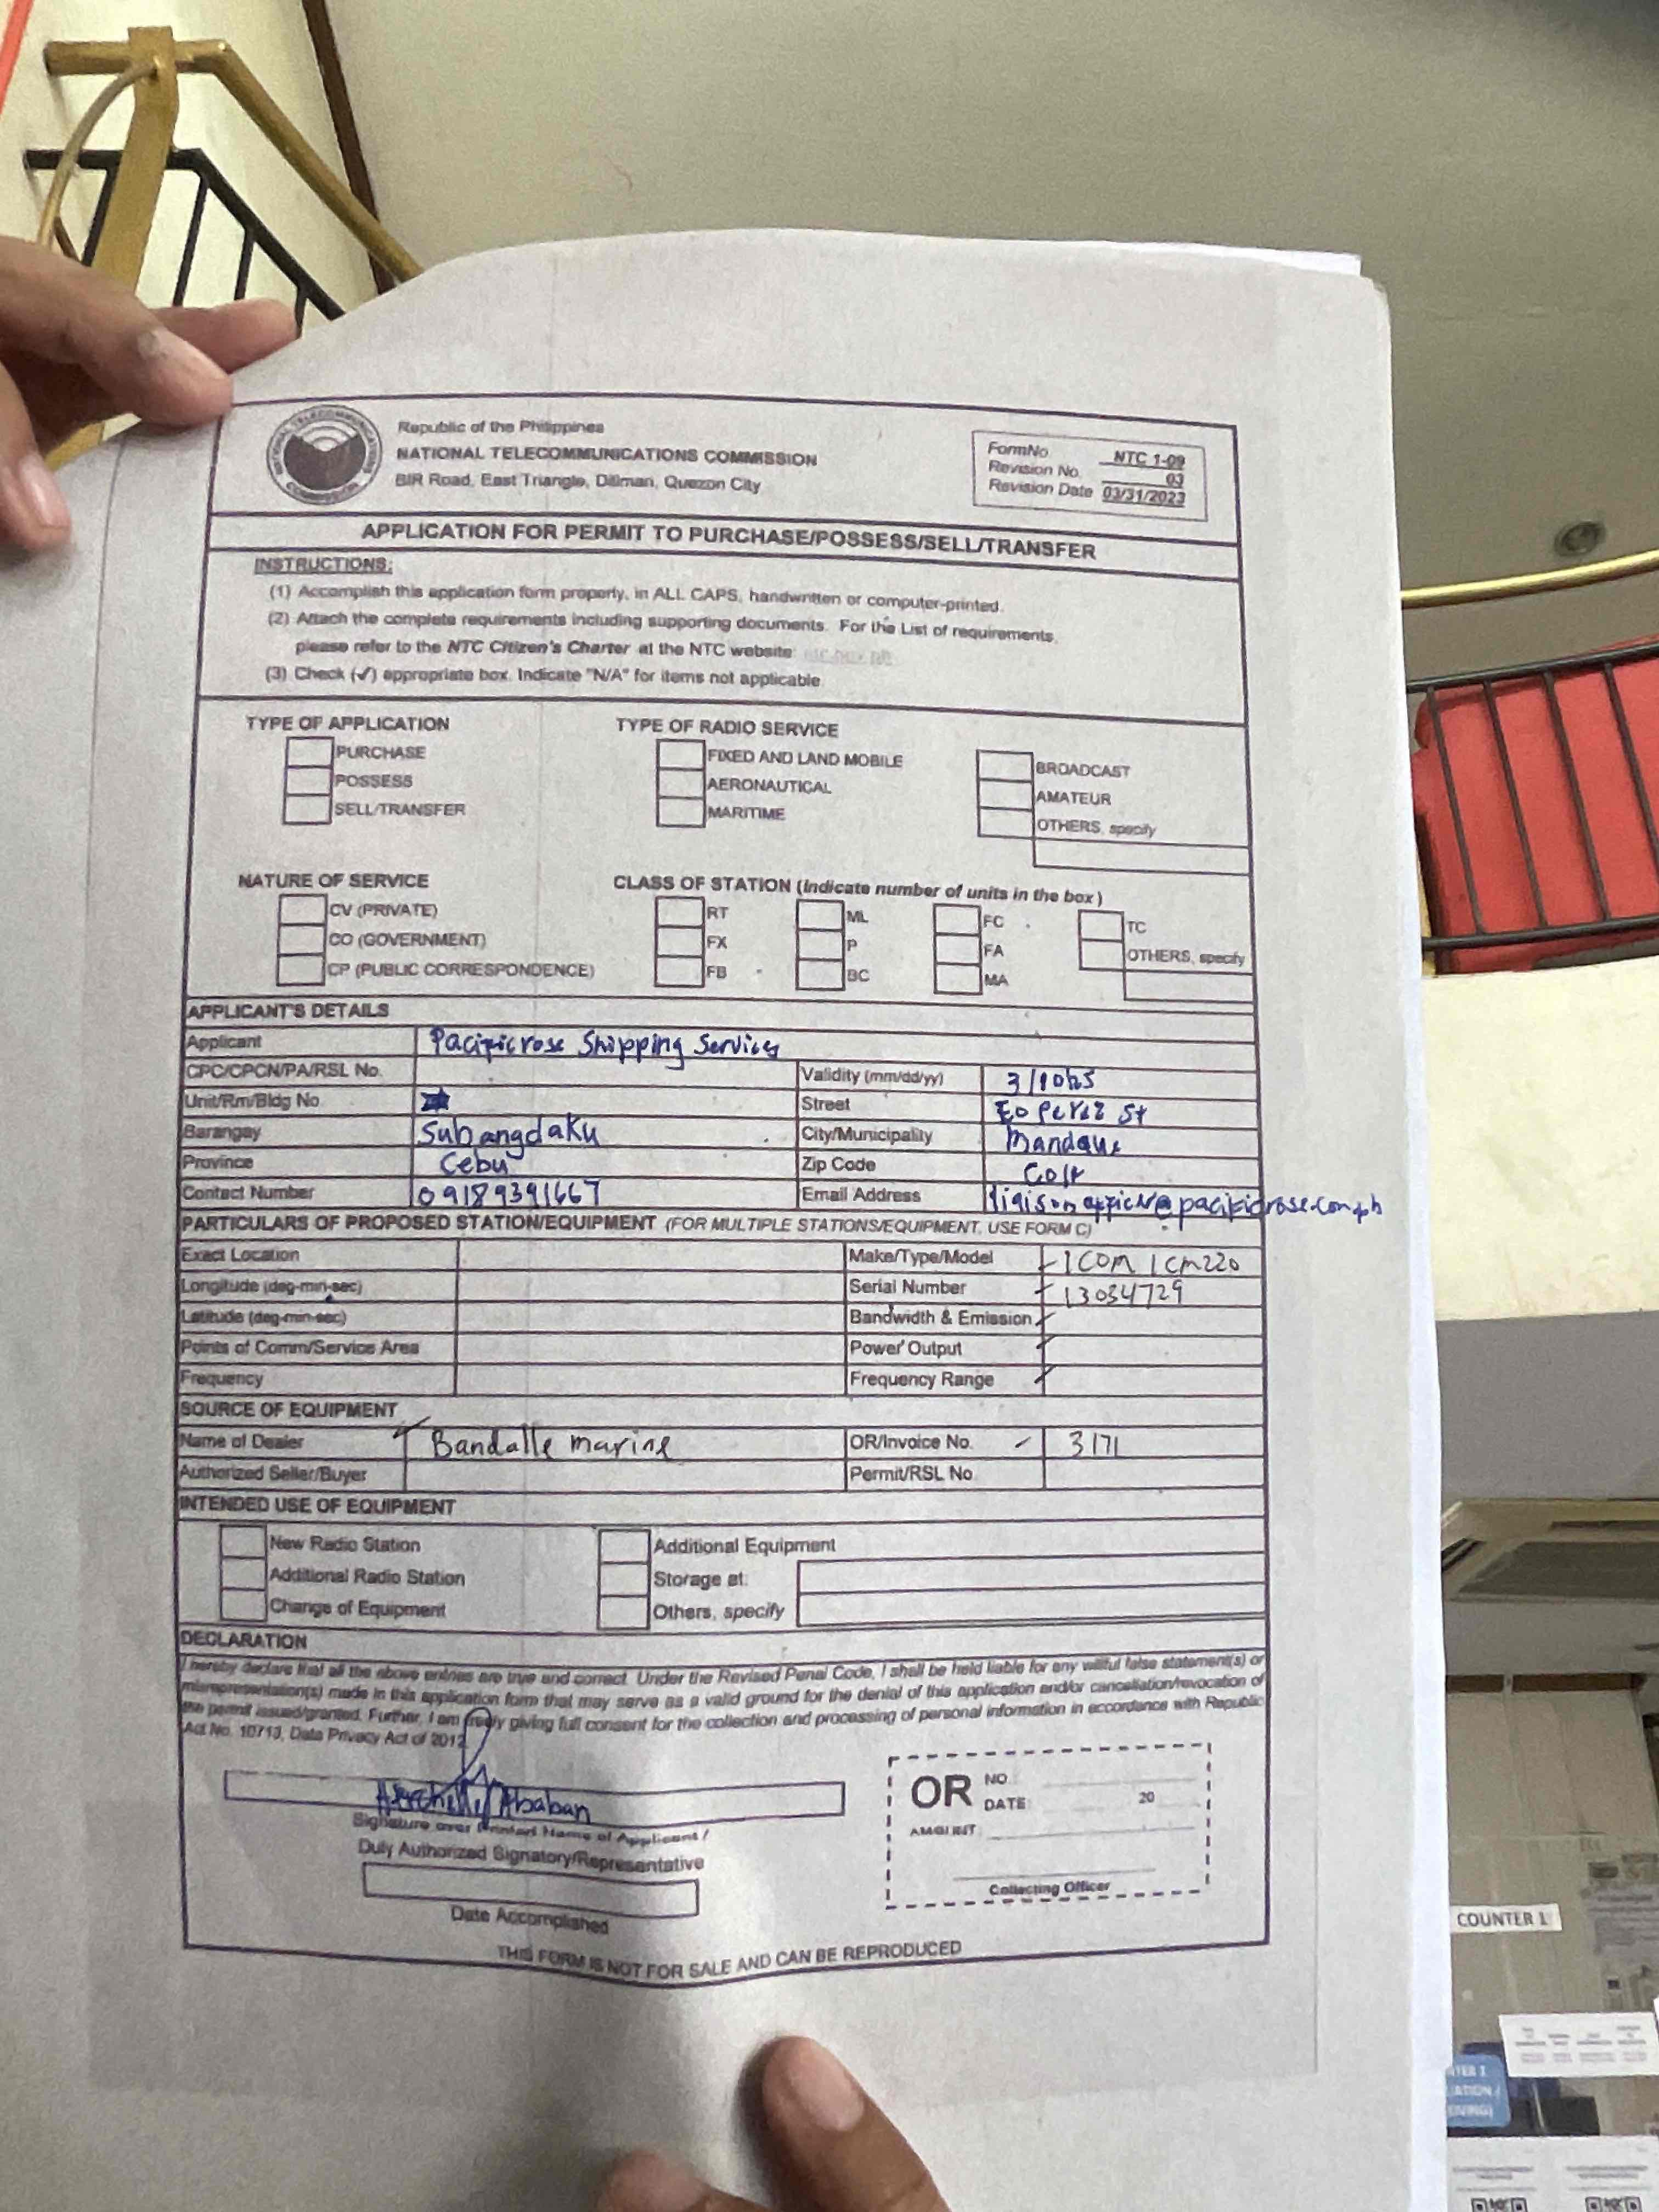 NATIONAL TELECOMMUNICATIONS COMMISSION
Republic of the Philippines
NATIONAL TELECOMMUNICATIONS COMMISSION
BIR Road, East Triangle, Diliman, Quezon City
FormNo. NTC 1-09
Revision No. 03
Revision Date 03/31/2023
APPLICATION FOR PERMIT TO PURCHASE/POSSESS/SELL/TRANSFER
INSTRUCTIONS:
(1) Accomplish this application form properly, in ALL CAPS, handwritten or computer-printed.
(2) Attach the complete requirements including supporting documents. For the List of requirements,
please refer to the NTC Citizen's Charter at the NTC website:
(3) Check (✓) appropriate box. Indicate "N/A" for items not applicable.
TYPE OF APPLICATION TYPE OF RADIO SERVICE
PURCHASE FIXED AND LAND MOBILE BROADCAST
POSSESS AERONAUTICAL AMATEUR
SELL/TRANSFER MARITIME OTHERS, specify
NATURE OF SERVICE CLASS OF STATION (Indicate number of units in the box)
CV (PRIVATE) RT ML FC TC
CO (GOVERNMENT) FX P FA OTHERS, specify
CP (PUBLIC CORRESPONDENCE) FB BC MA
APPLICANT'S DETAILS
Applicant Pacificrose Shipping Services
CPC/CPCN/PA/RSL No. Validity (mm/dd/yy)
Unit/Rm/Bldg No. Street EO Perez St
Barangay Subangdaku City/Municipality Mandaue
Province Cebu Zip Code
Contact Number 09189391667 Email Address
PARTICULARS OF PROPOSED STATION/EQUIPMENT (FOR MULTIPLE STATIONS/EQUIPMENT, USE FORM C)
Exact Location Make/Type/Model ICOM ICM220
Longitude (deg-min-sec) Serial Number 13034729
Latitude (deg-min-sec) Bandwidth & Emission
Points of Comm/Service Area Power Output
Frequency Frequency Range
SOURCE OF EQUIPMENT
Name of Dealer Bandalle marine OR/Invoice No. 3171
Authorized Seller/Buyer Permit/RSL No.
INTENDED USE OF EQUIPMENT
New Radio Station Additional Equipment
Additional Radio Station Storage at:
Change of Equipment Others, specify
DECLARATION
I hereby declare that all the above entries are true and correct. Under the Revised Penal Code, I shall be held liable for any willful false statement(s) or
misrepresentation(s) made in this application form that may serve as a valid ground for the denial of this application and/or cancellation/revocation of
the permit issued/granted. Further, I am freely giving full consent for the collection and processing of personal information in accordance with Republic
Act No. 10713, Data Privacy Act of 2012.
Ababan
Signature over Printed Name of Applicant /
Duly Authorized Signatory/Representative
Date Accomplished
OR NO.
DATE: 20
AMOUNT
Collecting Officer
THIS FORM IS NOT FOR SALE AND CAN BE REPRODUCED
COUNTER 1